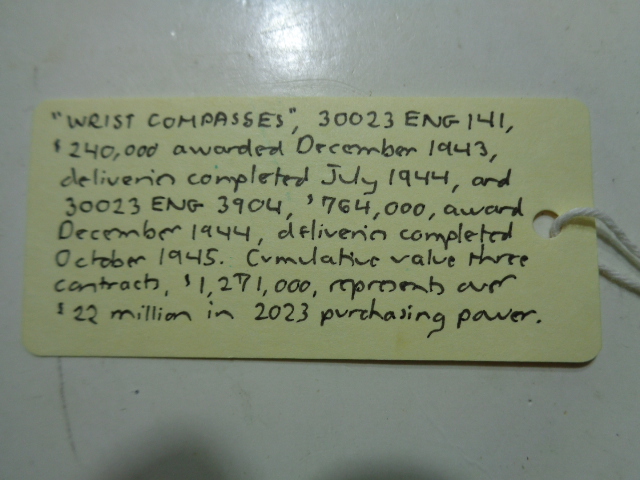 "WRIST COMPASSES", 30023 ENG 141,
$240,000 awarded December 1943,
deliveries completed July 1944, and
30023 ENG 3904, $764,000, award
December 1944, deliveries completed
October 1945. Cumulative value three
contracts, $1,271,000, represents over
$22 million in 2023 purchasing power.